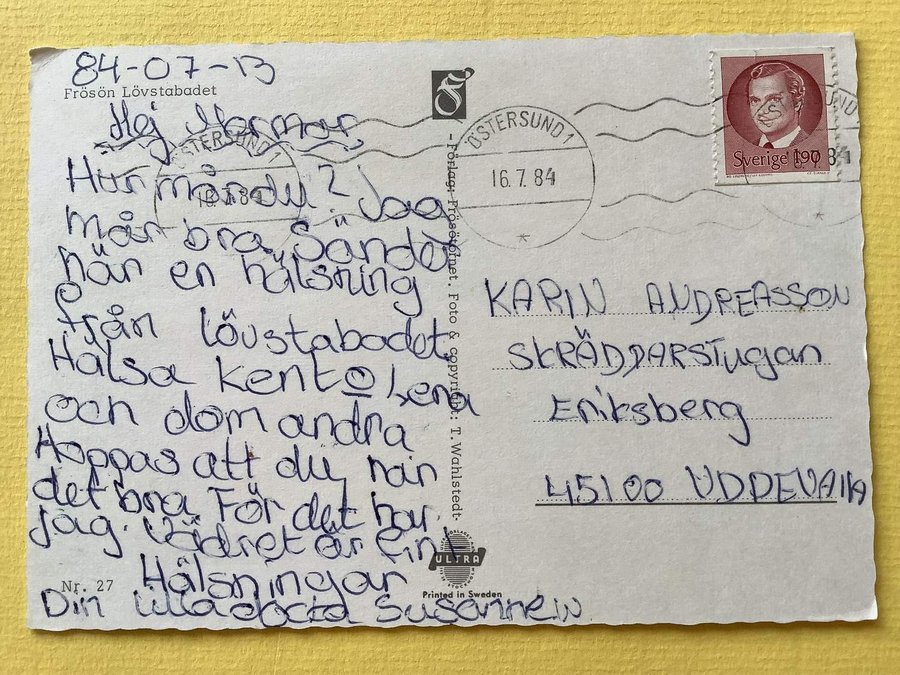 84-07-13
Frösön Lövstabadet
Hej Mormor
Hur mår du? Jag
mår bra Sänder
här en hälsning
från lövstabadet.
Hälsa Kent o Lena
och dom andra
Hoppas att du har
det bra För det har
jag. Vädret är fint
Hälsningar
Nr. 27
Din lilla docta Susanne
-Förlag: Frösötornet. Foto & copyright: T. Wahlstedt-
ULTRA
Printed in Sweden
ÖSTERSUND 1
16.7.84
ÖSTERSUND 1
16.7.84
Sverige 190
KARIN ANDREASSON
SKRÄDDARSTugan
Eriksberg
45100 UDDEVAllA